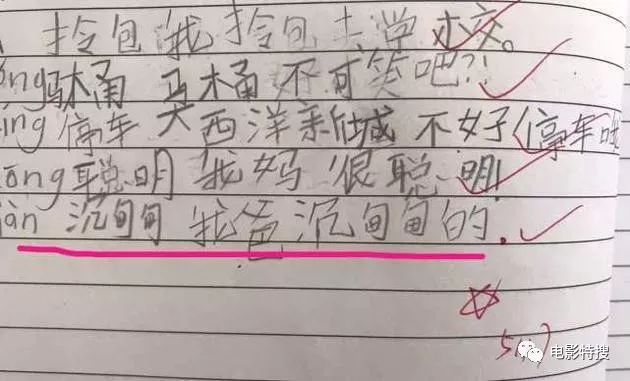 拎包 我拎包上学校。
ong 马桶 马桶不可笑吧?!
ing 停车 大西洋新城不好停车啦
ōng 聪明 我妈很聪明!
iàn 沉甸甸 我爸沉甸甸的.
5.7
电影特搜